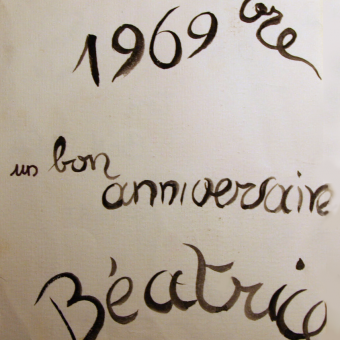 1969
un bon
anniversaire
Béatric